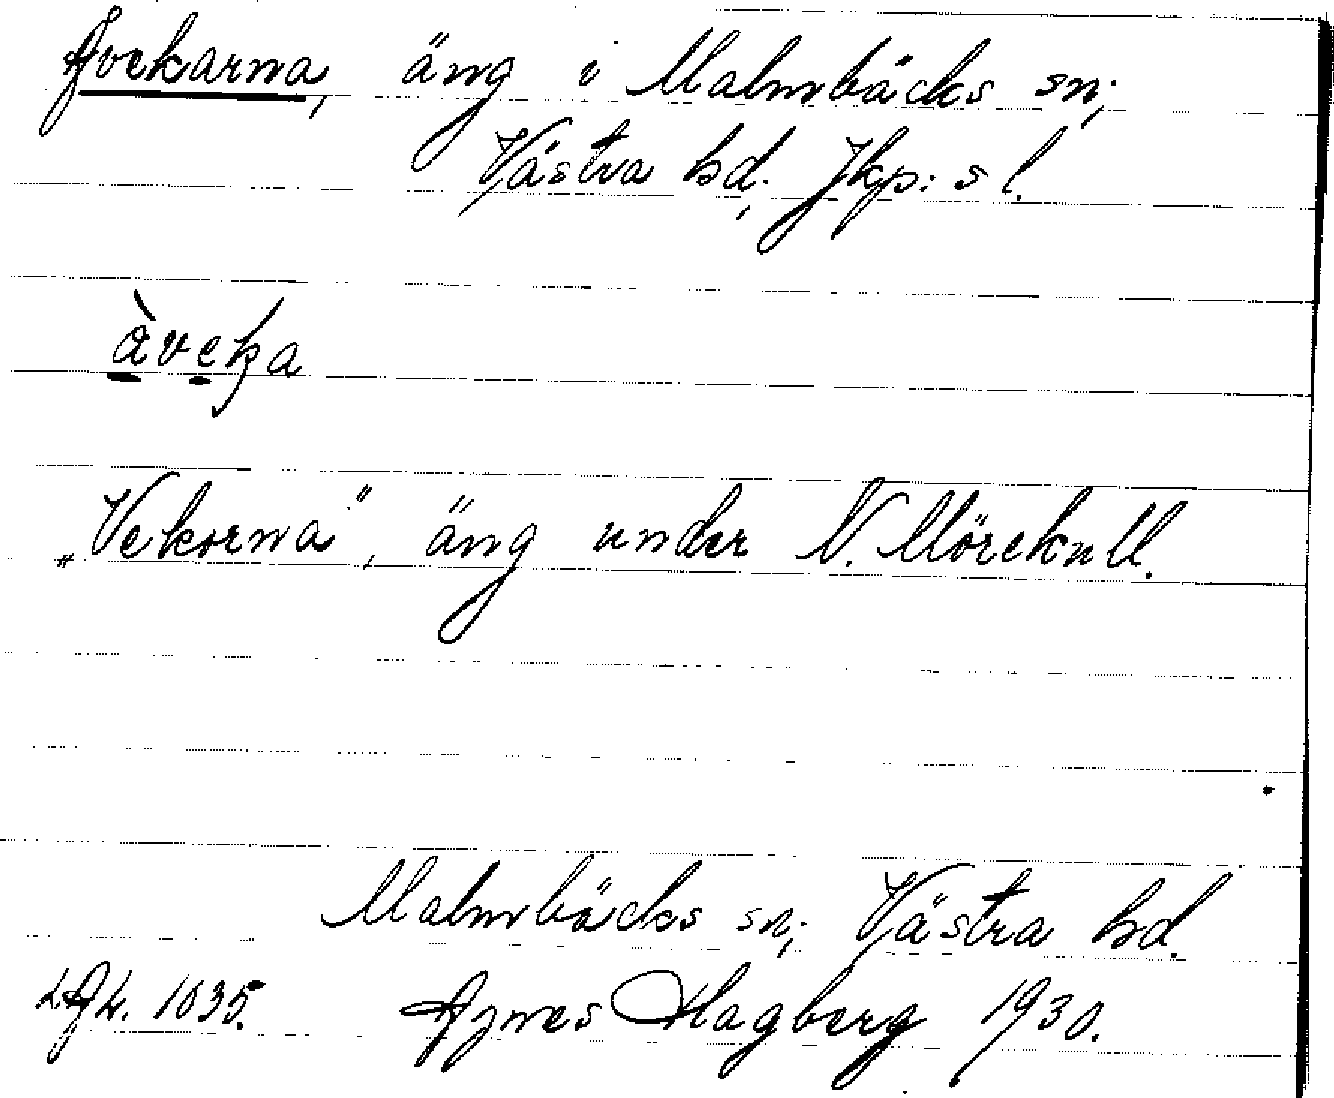 Avekarna, äng i Malmbäcks sn;
Västra hd, Jkp:s l.
àveka
"Vekorna", äng under N. Mörekull.
Malmbäcks sn; Västra hd.
1035. Agnes Hagberg 1930.